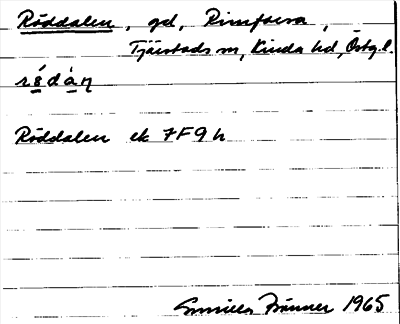 Röddalen, gd, Rimforsa,
Tjärstads sn, Kinda hd, Östg.l.
rö́dàṇ
Röddalen ek 7F9h
Gunilla Brånner 1965